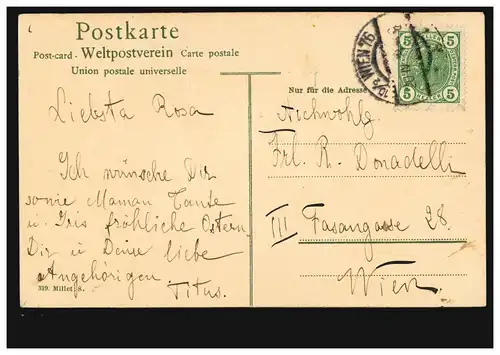 Postkarte
Post-card - Weltpostverein Carte postale
Union postale universelle
WIEN 76
5 5
5 5
HELLER
Nur für die Adresse
Liebsta Rosa
Ich wünsche Dir
sowie Maman Tante
u. Iris fröhliche Ostern
Dir u Deine liebe
Angehörigen
Titus.
319. Millet, S.
Frl. R. Donadelli
III Fasangasse 28.
Wien